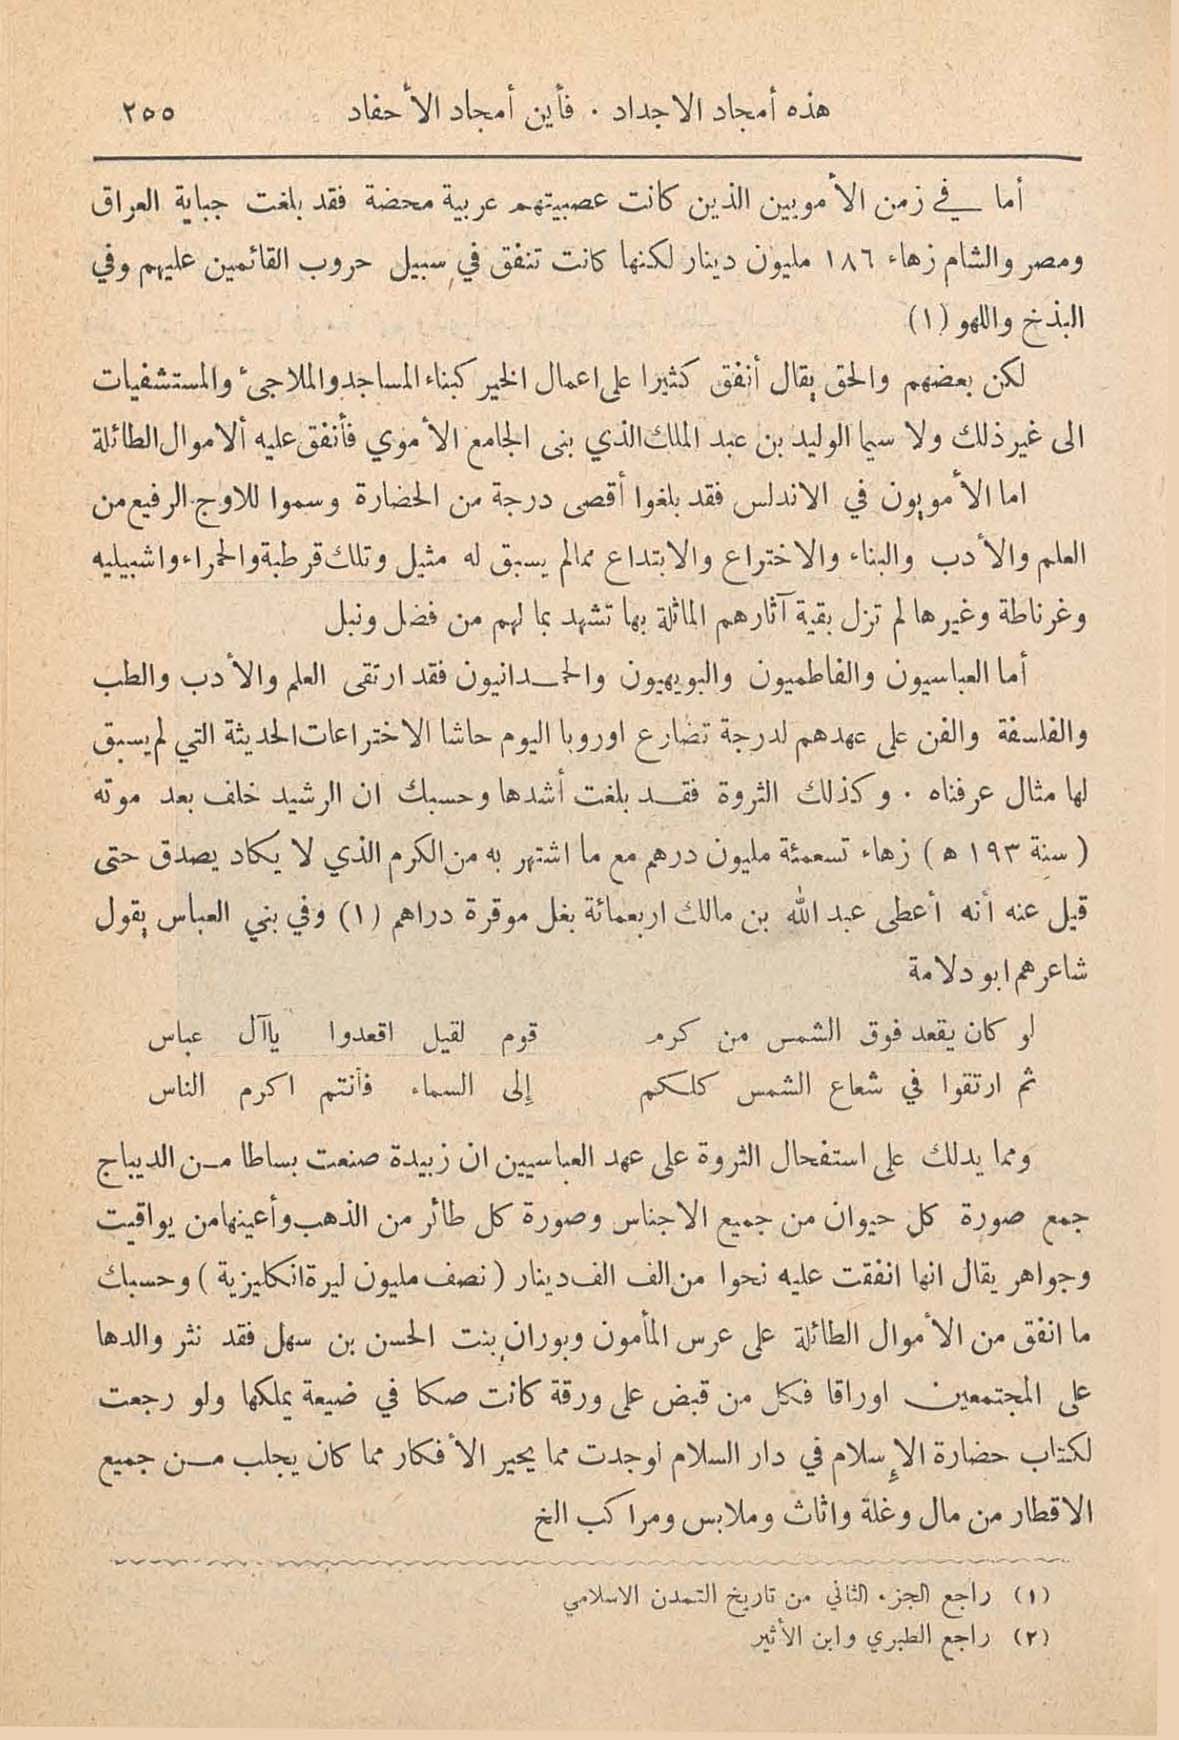 هذه أمجاد الاجداد . فأين أمجاد الأحفاد ٢٥٥
أما في زمن الأمويين الذين كانت عصبيتهم عربية محضة فقد بلغت جباية العراق
ومصر والشام زهاء ١٨٦ مليون دينار لكنها كانت تنفق في سبيل حروب القائمين عليهم وفي
البذخ واللهو (١)
لكن بعضهم والحق يقال أنفق كثيرا على اعمال الخير كبناء المساجد والملاجئ والمستشفيات
الى غير ذلك ولا سيما الوليد بن عبد الملك الذي بنى الجامع الأموي فأنفق عليه ألاموال الطائلة
اما الأمويون في الاندلس فقد بلغوا أقصى درجة من الحضارة وسموا للاوج الرفيع من
العلم والأدب والبناء والاختراع والابتداع ممالم يسبق له مثيل وتلك قرطبة والحمراء واشبيليه
وغرناطة وغيرها لم تزل بقية آثارهم الماثلة بها تشهد بما لهم من فضل ونبل
أما العباسيون والفاطميون والبويهيون والحمدانيون فقد ارتقى العلم والأدب والطب
والفلسفة والفن على عهدهم لدرجة تضارع اوروبا اليوم حاشا الاختراعات الحديثة التي لم يسبق
لها مثال عرفناه . وكذلك الثروة فقد بلغت أشدها وحسبك ان الرشيد خلف بعد موته
( سنة ١٩٣ هـ ) زهاء تسعمئة مليون درهم مع ما اشتهر به من الكرم الذي لا يكاد يصدق حتى
قيل عنه أنه أعطى عبد الله بن مالك اربعمائة بغل موقرة دراهم (١) وفي بني العباس يقول
شاعرهم ابو دلامة
لو كان يقعد فوق الشمس من كرم قوم لقيل اقعدوا ياآل عباس
ثم ارتقوا في شعاع الشمس كلكم إلى السماء فأنتم اكرم الناس
ومما يدلك على استفحال الثروة على عهد العباسيين ان زبيدة صنعت بساطا من الديباج
جمع صورة كل حيوان من جميع الاجناس وصورة كل طائر من الذهب وأعينها من يواقيت
وجواهر يقال انها انفقت عليه نحوا من الف الف دينار ( نصف مليون ليرة انكليزية ) وحسبك
ما انفق من الأموال الطائلة على عرس المأمون وبوران بنت الحسن بن سهل فقد نثر والدها
على المجتمعين اوراقا فكل من قبض على ورقة كانت صكا في ضيعة يملكها ولو رجعت
لكتاب حضارة الإسلام في دار السلام لوجدت مما يحير الأفكار مما كان يجلب من جميع
الاقطار من مال وغلة واثاث وملابس ومراكب الخ
(١) راجع الجزء الثاني من تاريخ التمدن الاسلامي
(٢) راجع الطبري وابن الأثير